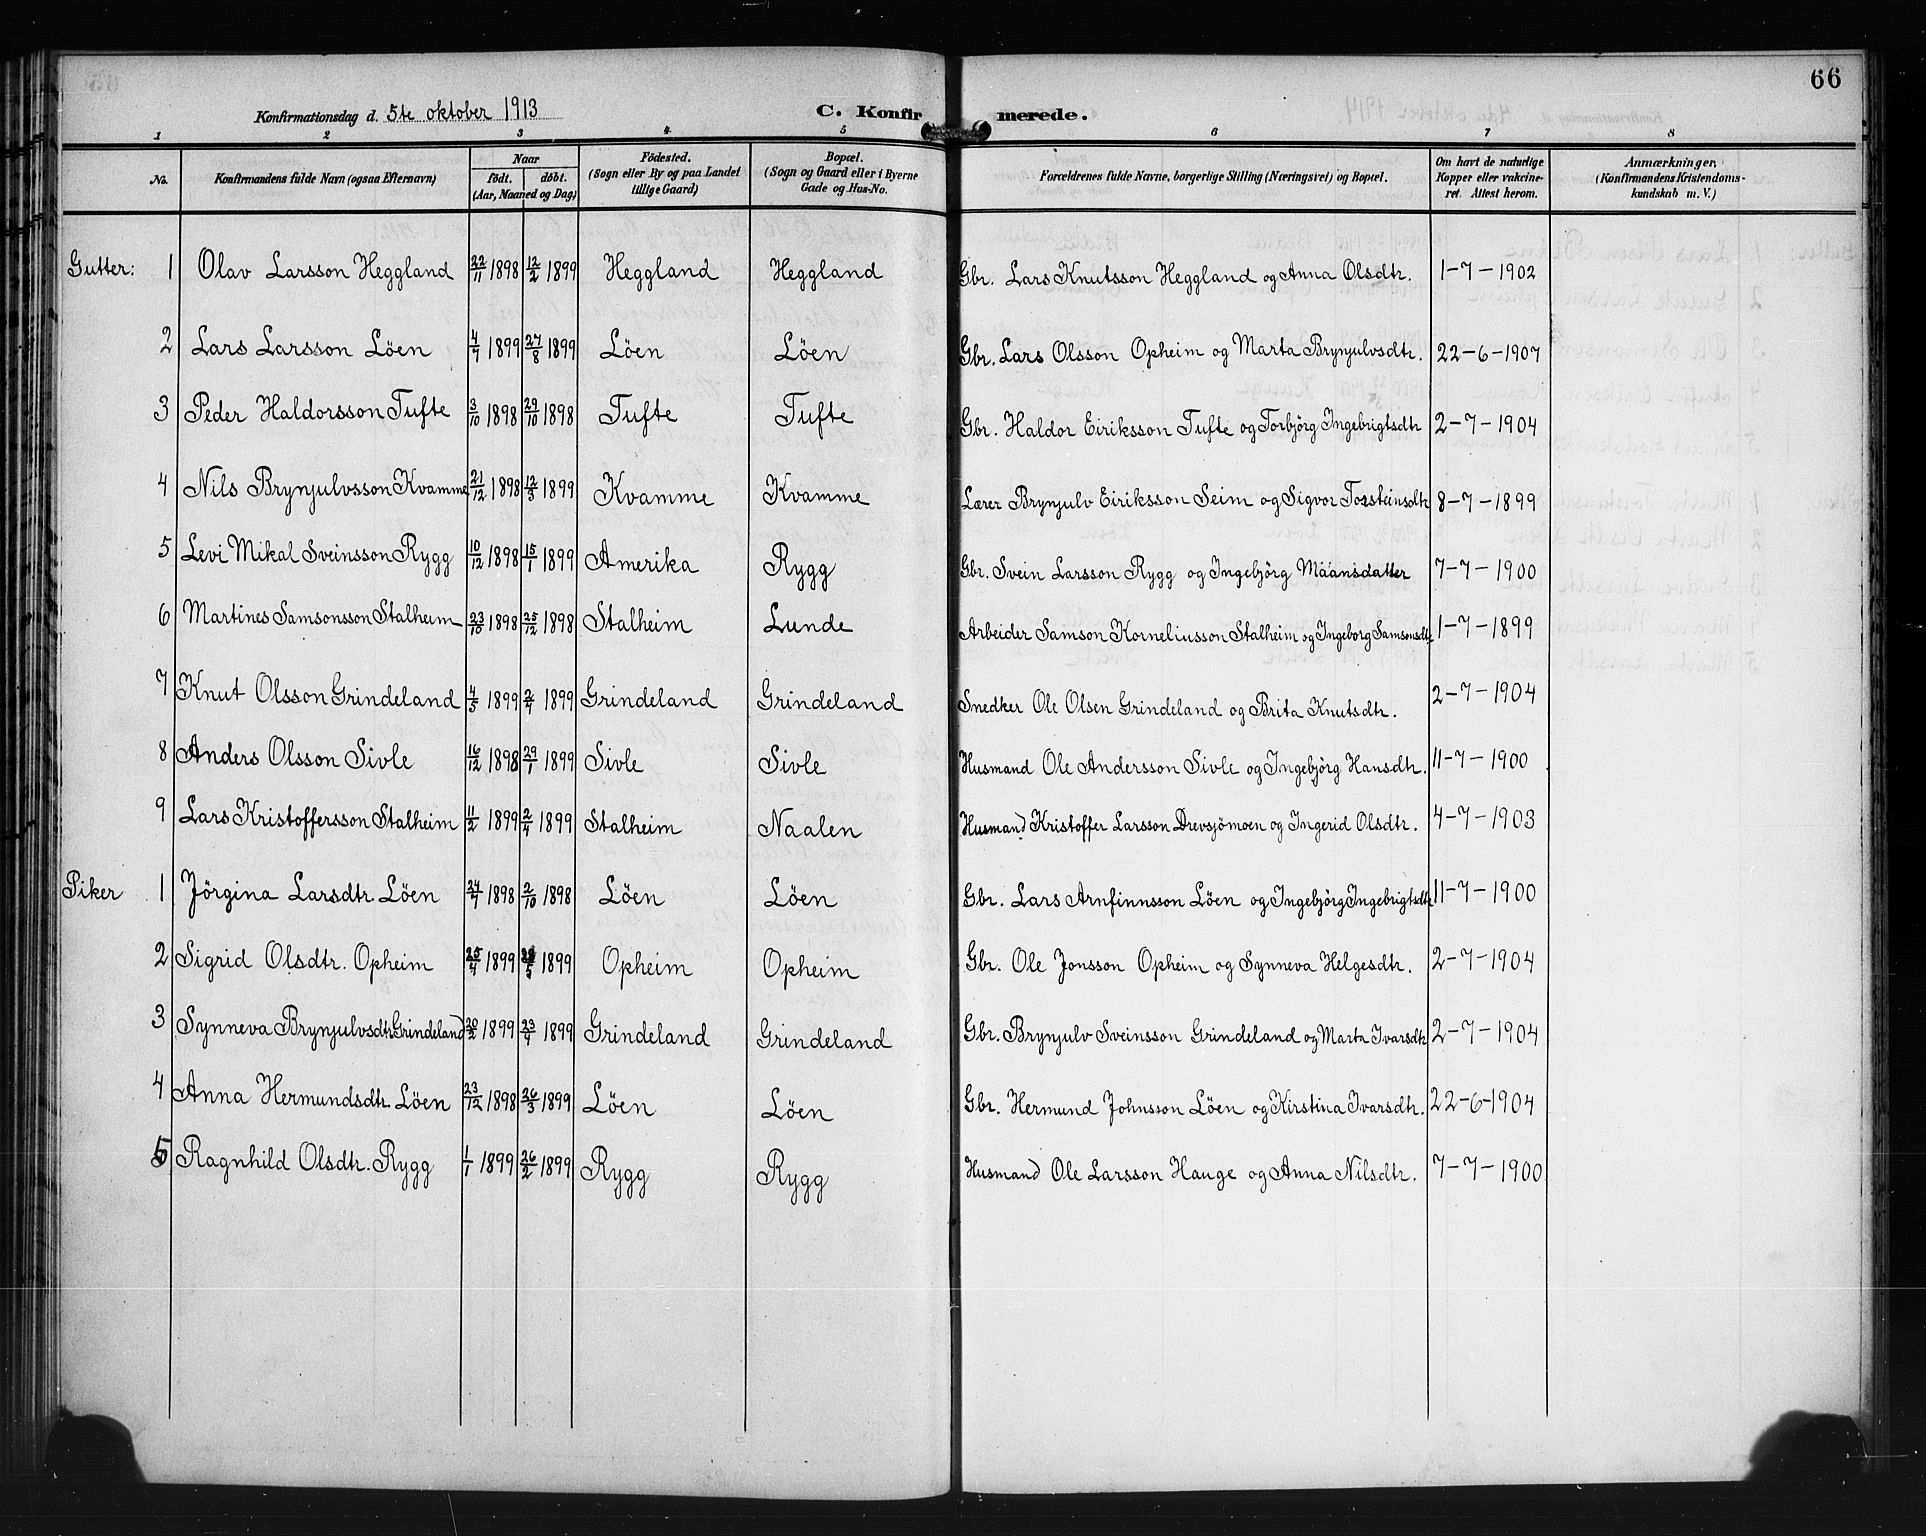 66
Konfirmationsdag d. 5te oktober 1913 C. Konfirmerede.
1 2 3 4 5 6 7 8
No. Konfirmandens fulde Navn (ogsaa Efternavn) Naar födt. döbt. (Aar, Maaned og Dag) Födested. (Sogn eller By og paa Landet tillige Gaard) Bopæl. (Sogn og Gaard eller i Byerne Gade og Hus-No. Forældrenes fulde Navne, borgerlige Stilling (Næringsvei) og Bopæl. Om havt de naturlige Kopper eller vakcineret. Attest herom. Anmærkninger, (Konfirmandens Kristendomskundskab m. V.)
Gutter: 1 Olav Larsson Heggland 22/11 1898 12/2 1899 Heggland Heggland Gbr. Lars Knutsson Heggland og Anna Olsdtr. 1-7-1902
2 Lars Larsson Löen 4/7 1899 27/8 1899 Löen Löen Gbr. Lars Olsson Opheim og Marta Brynjulvsdtr. 22-6-1907
3 Peder Haldorsson Tufte 3/10 1898 29/10 1898 Tufte Tufte Gbr. Haldor Eiriksson Tufte og Torbjörg Ingebrigtsdtr 2-7-1904
4 Nils Brynjulvsson Kvamme 21/12 1898 12/3 1899 Kvamme Kvamme Lærer Brynjulv Eiriksson Seim og Sigvor Torsteinsdtr 8-7-1899
5 Levi Mikal Sveinsson Rygg 10/12 1898 15/1 1899 Amerika Rygg Gbr. Svein Larsson Rygg og Ingebjörg Måansdatter 7-7-1900
6 Martines Samsonsson Stalheim 23/10 1898 25/12 1898 Stalheim Lunde Arbeider Samson Korneliusson Stalheim og Ingeborg Samsonsdtr 1-7-1899
7 Knut Olsson Grindeland 4/3 1899 2/4 1899 Grindeland Grindeland Snedker Ole Olsen Grindeland og Brita Knutsdtr. 2-7-1904
8 Anders Olsson Sivle 16/12 1898 29/1 1899 Sivle Sivle Husmand Ole Andersson Sivle og Ingebjörg Hansdtr. 11-7-1900
9 Lars Kristoffersson Stalheim 11/2 1899 2/4 1899 Stalheim Naalen Husmand Kristoffer Larsson Drevsjömoen og Ingerid Olsdtr. 4-7-1903
Piker 1 Jörgina Larsdtr. Löen 24/7 1898 2/10 1898 Löen Löen Gbr. Lars Arnfinnsson Löen og Ingebjörg Ingebrigtsdtr 11-7-1900
2 Sigrid Olsdtr. Opheim 25/4 1899 /5 1899 Opheim Opheim Gbr. Ole Jonsson Opheim og Synneva Helgesdtr. 2-7-1904
3 Synneva Brynjulvsdtr Grindeland 20/2 1899 23/4 1899 Grindeland Grindeland Gbr. Brynjulv Sveinsson Grindeland og Marta Ivarsdtr 2-7-1904
4 Anna Hermundsdtr. Löen 23/12 1898 26/3 1899 Löen Löen Gbr. Hermund Johnsson Löen og Kirstina Ivarsdtr. 22-6-1904
5 Ragnhild Olsdtr. Rygg 1/1 1899 26/2 1899 Rygg Rygg Husmand Ole Larsson Hauge og Anna Nilsdtr. 7-7-1900